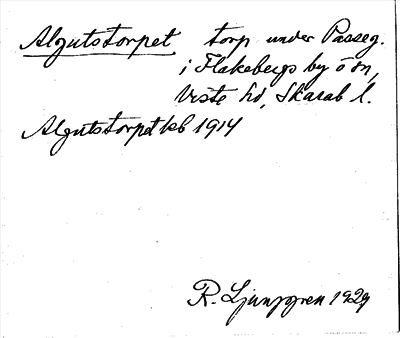 Algutstorpet torp under Passeg.
i Flakebergs by o sn,
Viste hd, Skarab l.
Algutstorpet kb 1914
R. Ljunggren 1929